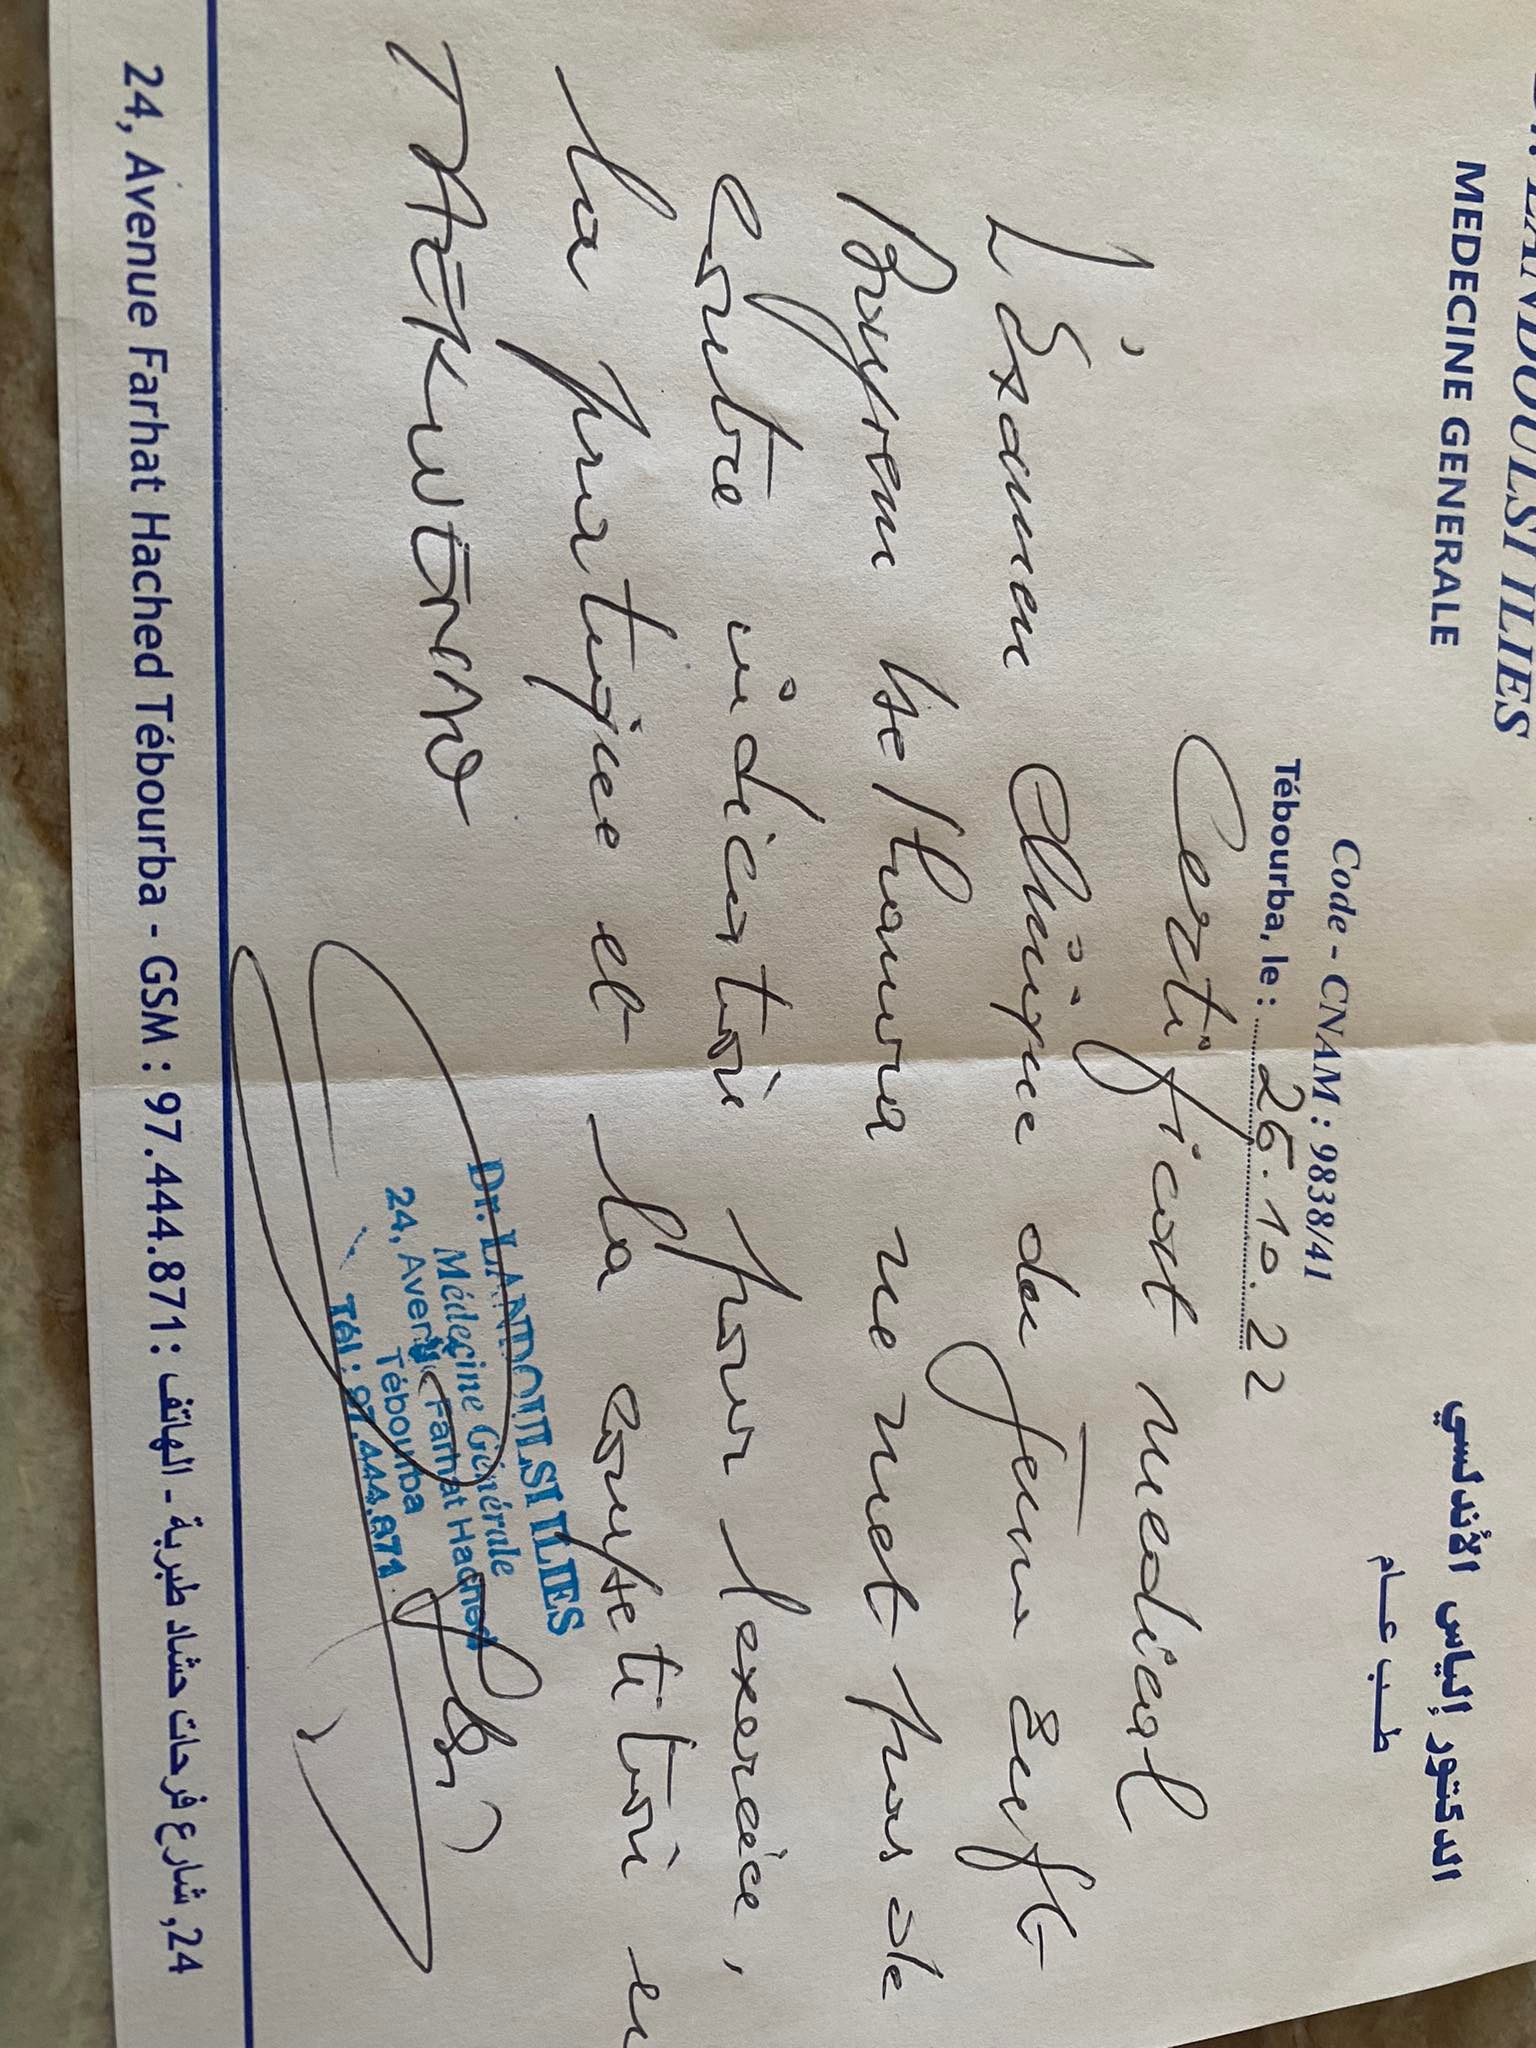 Dr. LANDOULSI ILIES
MEDECINE GENERALE
الدكتور إلياس الأندلسي
طـب عـام
Code - CNAM : 9838/41
Tébourba, le : 26.10.22
Certificat medical
L'Examen Clinique du Jeune
ne met pas de
contre indication pour l'exercice,
la pratique et la en
TAEKWENDO
Dr. LANDOULSI ILIES
Médecine Générale
24, Avenue Farhat Hached
Tébourba
Tél : 97.444.871
24, Avenue Farhat Hached Tébourba - GSM : 97.444.871 : الهاتف - 24, شارع فرحات حشاد طبربة